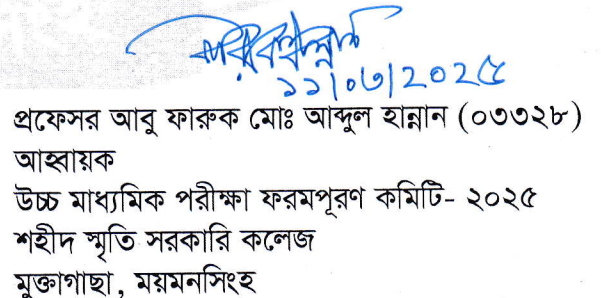 ১১/০৩/2০2৫
প্রফেসর আবু ফারুক মোঃ আব্দুল হান্নান (০৩৩২৮)
আহ্বায়ক
উচ্চ মাধ্যমিক পরীক্ষা ফরমপূরণ কমিটি- ২০২৫
শহীদ স্মৃতি সরকারি কলেজ
মুক্তাগাছা, ময়মনসিংহ